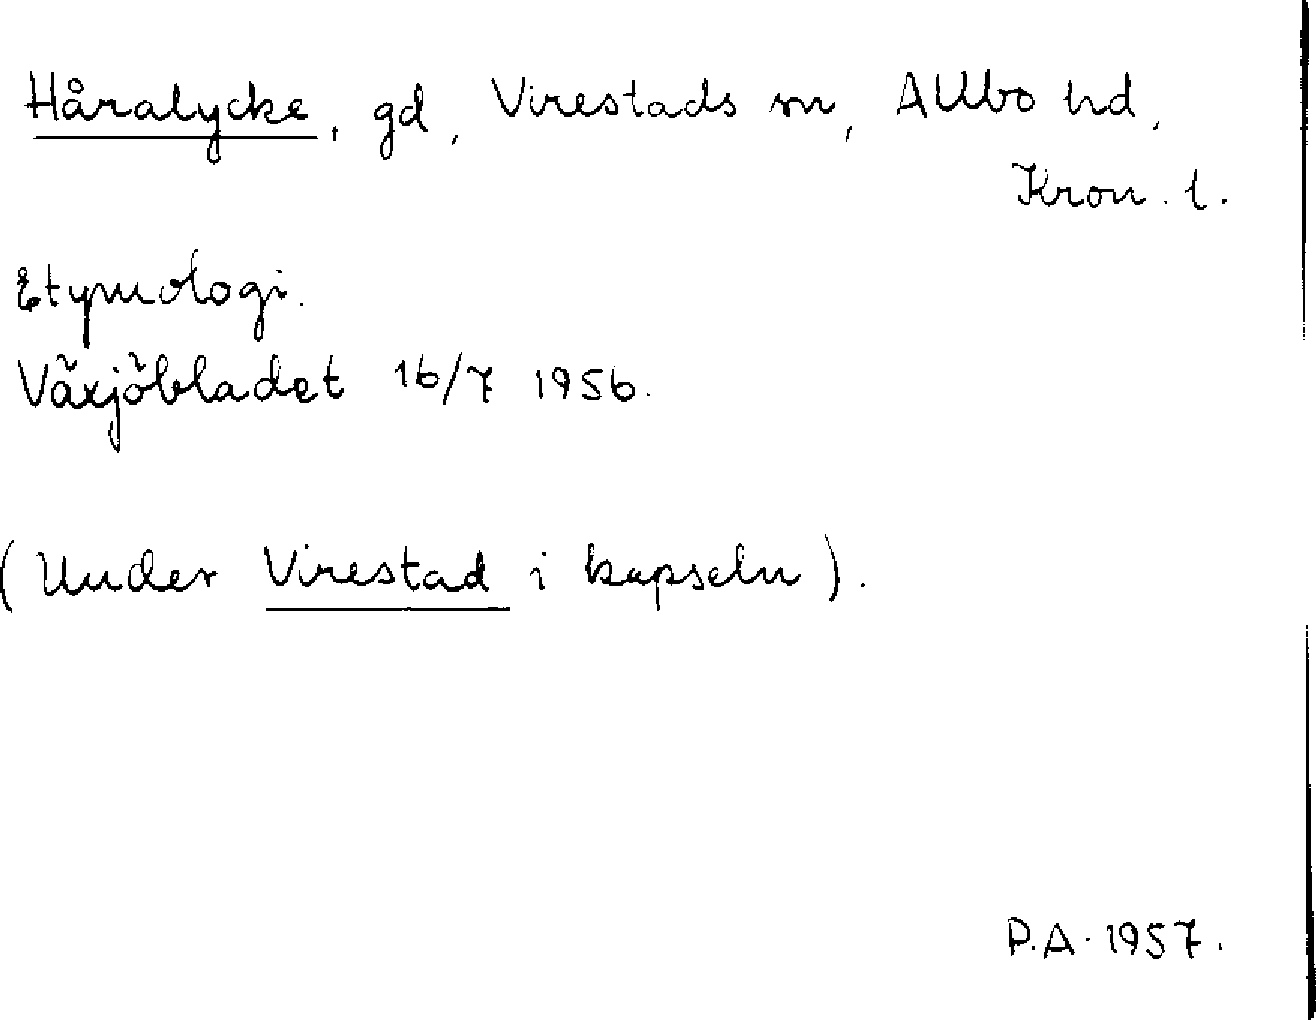 Håralycke, gd, Virestads sn, Allbo hd,
Kron. l.
Etymologi.
Växjöbladet 16/7 1956.
(Under Virestad i kapseln).
P.A. 1957.